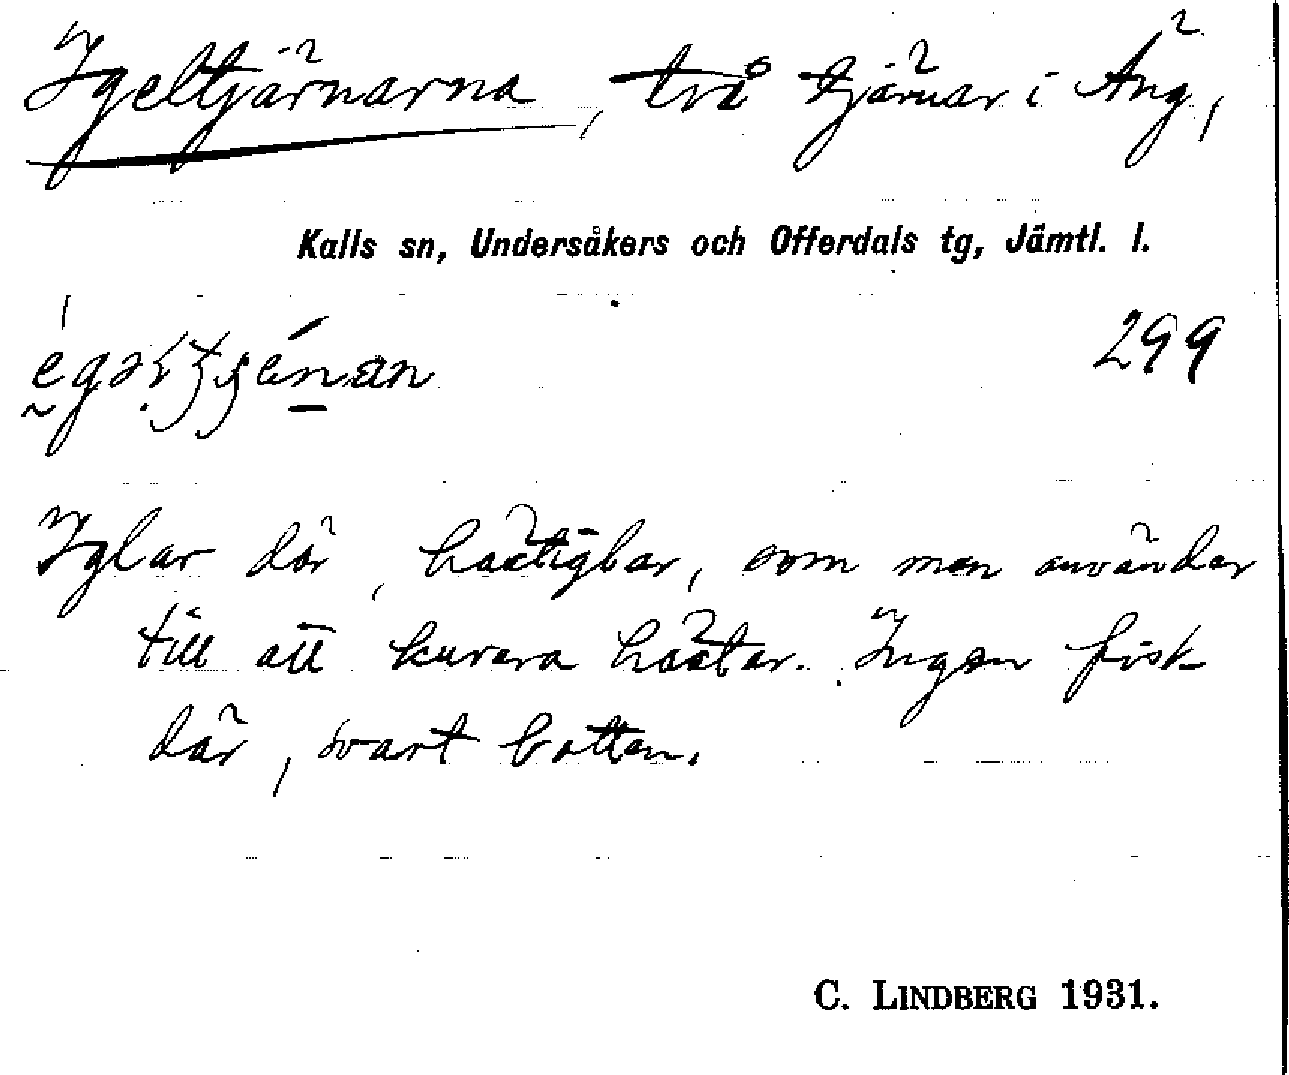 Igeltjärnarna, två tjärnar i Äng,
Kalls sn, Undersåkers och Offerdals tg, Jämtl. l.
299
Iglar där, hästiglar, som man använder
till att kurera hästar. Ingen fisk
där, svart botten.
C. LINDBERG 1931.